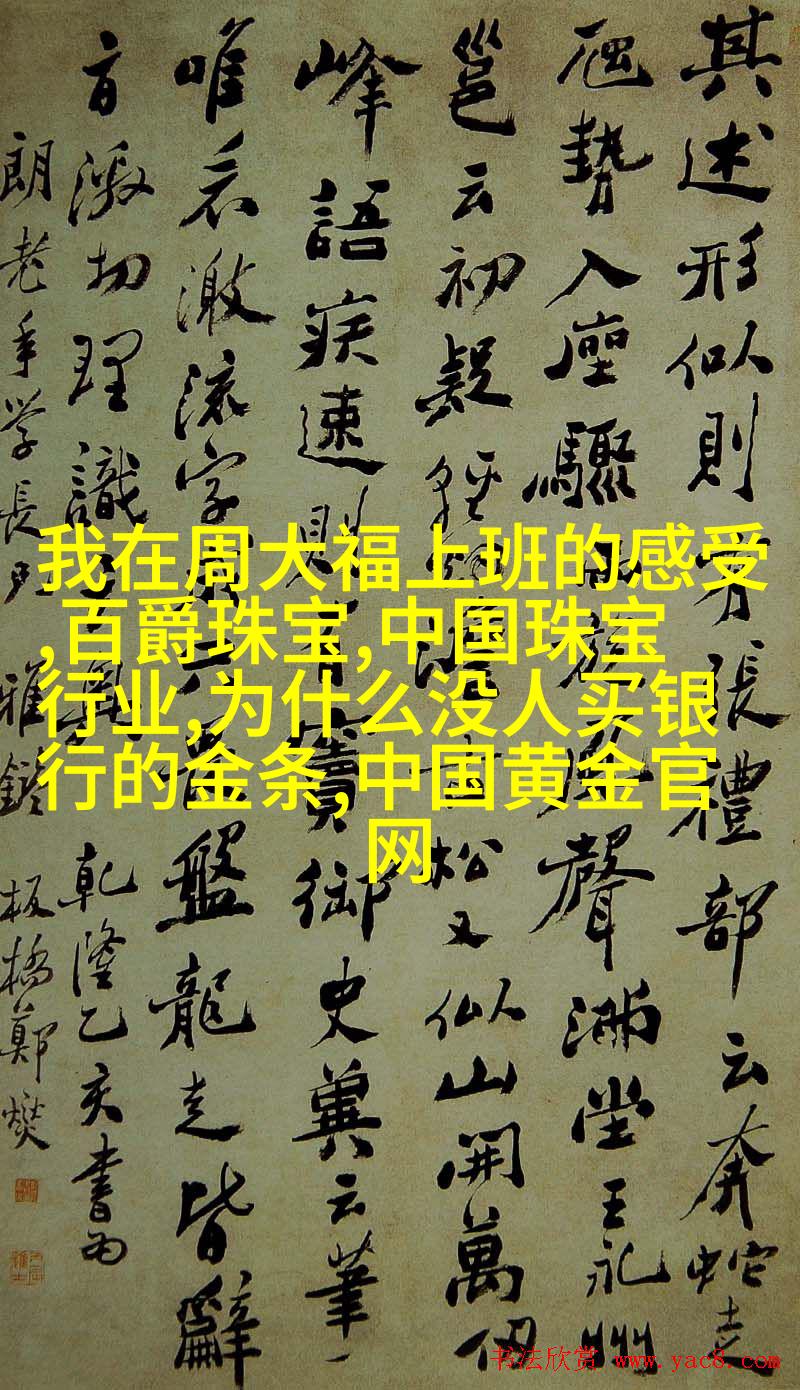 其述形似則有張禮部云奔蛇走
虺勢入座驟雨旋風聲滿堂王永州
邕云初疑輕煙澹古松又似山開萬仞
峰語疾速則有竇御史冀云筆一
唯看激流字成只畏盤龍走皆辭
旨激切理識玄奧乾隆乙亥書為
朗老年學長兄雅鑒板橋鄭燮
我在周大福上班的感受
,百爵珠宝,中国珠宝
行业,为什么没人买银
行的金条,中国黄金官
网
书法欣赏 www.yac8.com